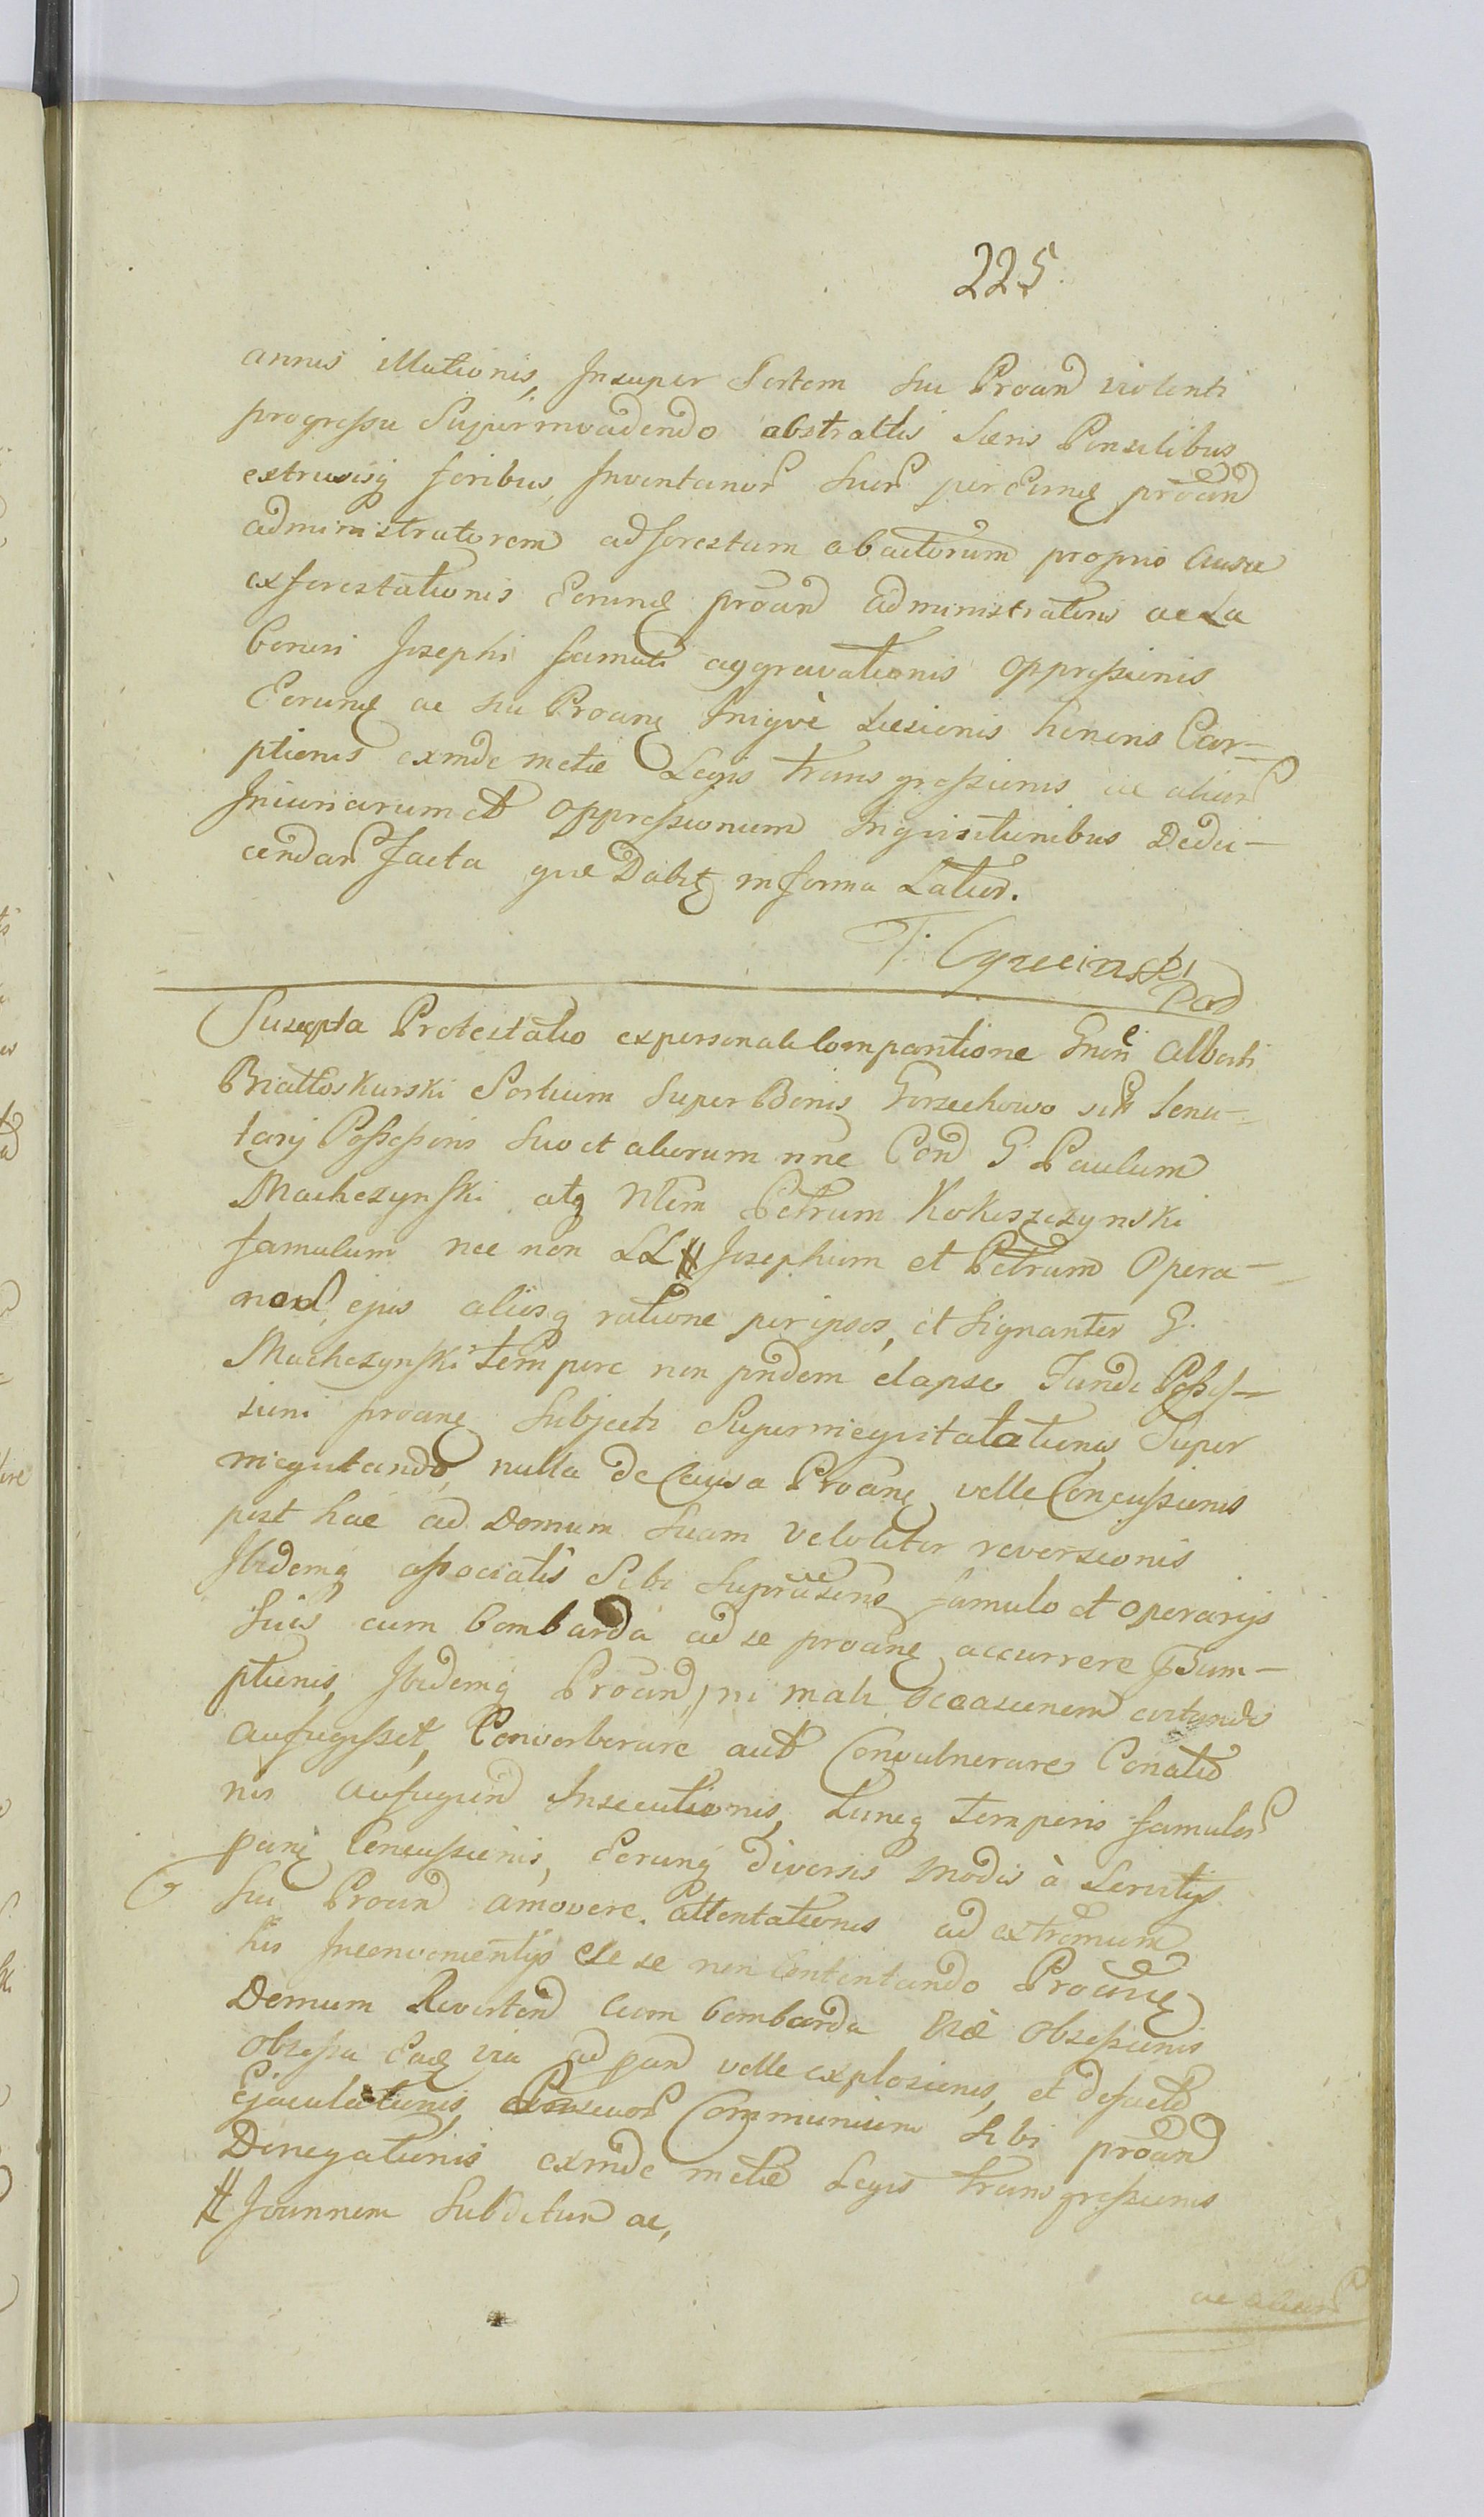 225
annis illationis, Insuper Sortem sui Proand violenti
progressu Superinvadendo abstractis Seris Pensilibus
extrusisq foribus, Inventarior Suor per Eunq proand
administratorem ad forestam abactorum proprio Ausu
exforestationis Eorunq proand administratoris ac La
boriosi Josephi famuli aggravationis oppressionis
Eorunq ac sui Proanq Iniqvè Laesionis honoris Car-
ptionis exinde metae Legis transgressionis ac aliar
Iniuriarum et oppressionum Inqvisitionibus Dedu-
cendar Facta que Dabitq in forma Latior.
T. Cgrecinski
Suscepta Protestatio ex personali Comparitione Gnen Alberti
Białłoskurski Sortium Super Bonis Gorzechowo sitt tenu-
tarij Possessoris Suo et aliorum nne Con G Paulum
Machczynski atq Nlem Petrum Kokoszczynski
famulum nec non LL # Josephum et Petrum Opera-
rios ejus aliisq ratione per ipsos, et Signanter G.
Machczynski tempore non pridem elapso Fundi Posses-
sioni proanq Subjecti Superineqvitatationis, Super
ineqvitando, nulla de Causa Proanq velle Concussionis
post hac ad Domum Suam Velociter reversionis
Ibidemq associatis Sibi Suprascris famulo et operarijs
Suis cum bombarda ad se proanq accurrere prsum-
ptionis, Ibidemq Proand, ni mali occasionem evitando
aufugisset, Converberare aut Convulnerare Conatio
nis aufugien Insecutionis, tuncq temporis famulor
panq Concussionis, Eorunq diversis modis à Servitijs
sui Proand amovere. attentationis ad extremum
his Inconvenientijs se se non Contentando Proanq
Domum Revertend Cum bombarda Viae Obsessionis
obsessa Eadq via ad pand velle explosionis, et defacto
Ejaculationis, Pascuor Communium Sibi proand
Denegationis exinde metae Legis transgressionis
# Joannem Subditum ac,
ac aliar